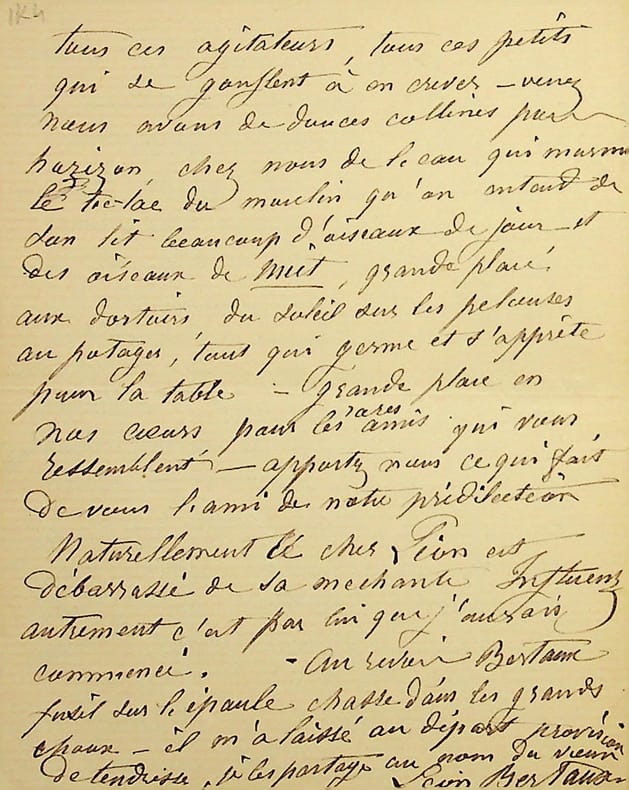 184
tous ces agitateurs, tous ces petits
qui se gonflent à en crever – venez
nous avons de douces collines pour
horizon, chez nous de l'eau qui murm
le tic-tac du moulin qu'on entend de
son lit beaucoup d'oiseaux de jour et
des oiseaux de nuit, grande place
aux dortoirs du soleil sur les pelouses
au potager, tout qui germe et s'apprête
pour la table – grande place en
nos coeurs pour les rares amis qui vous
ressemblent – apportez nous ce qui fait
de vous l'ami de notre prédilection
Naturellement le cher Léon est
débarrassé de sa mechante Influenz
autrement c'est par lui que j'aurais
commencé. – Au revoir Bertaux
fusil sur l'épaule chasse dans les grands
choux – il m'a laissé au départ provision
de tendresse, je les partage au nom du vieux
Léon Bertaux